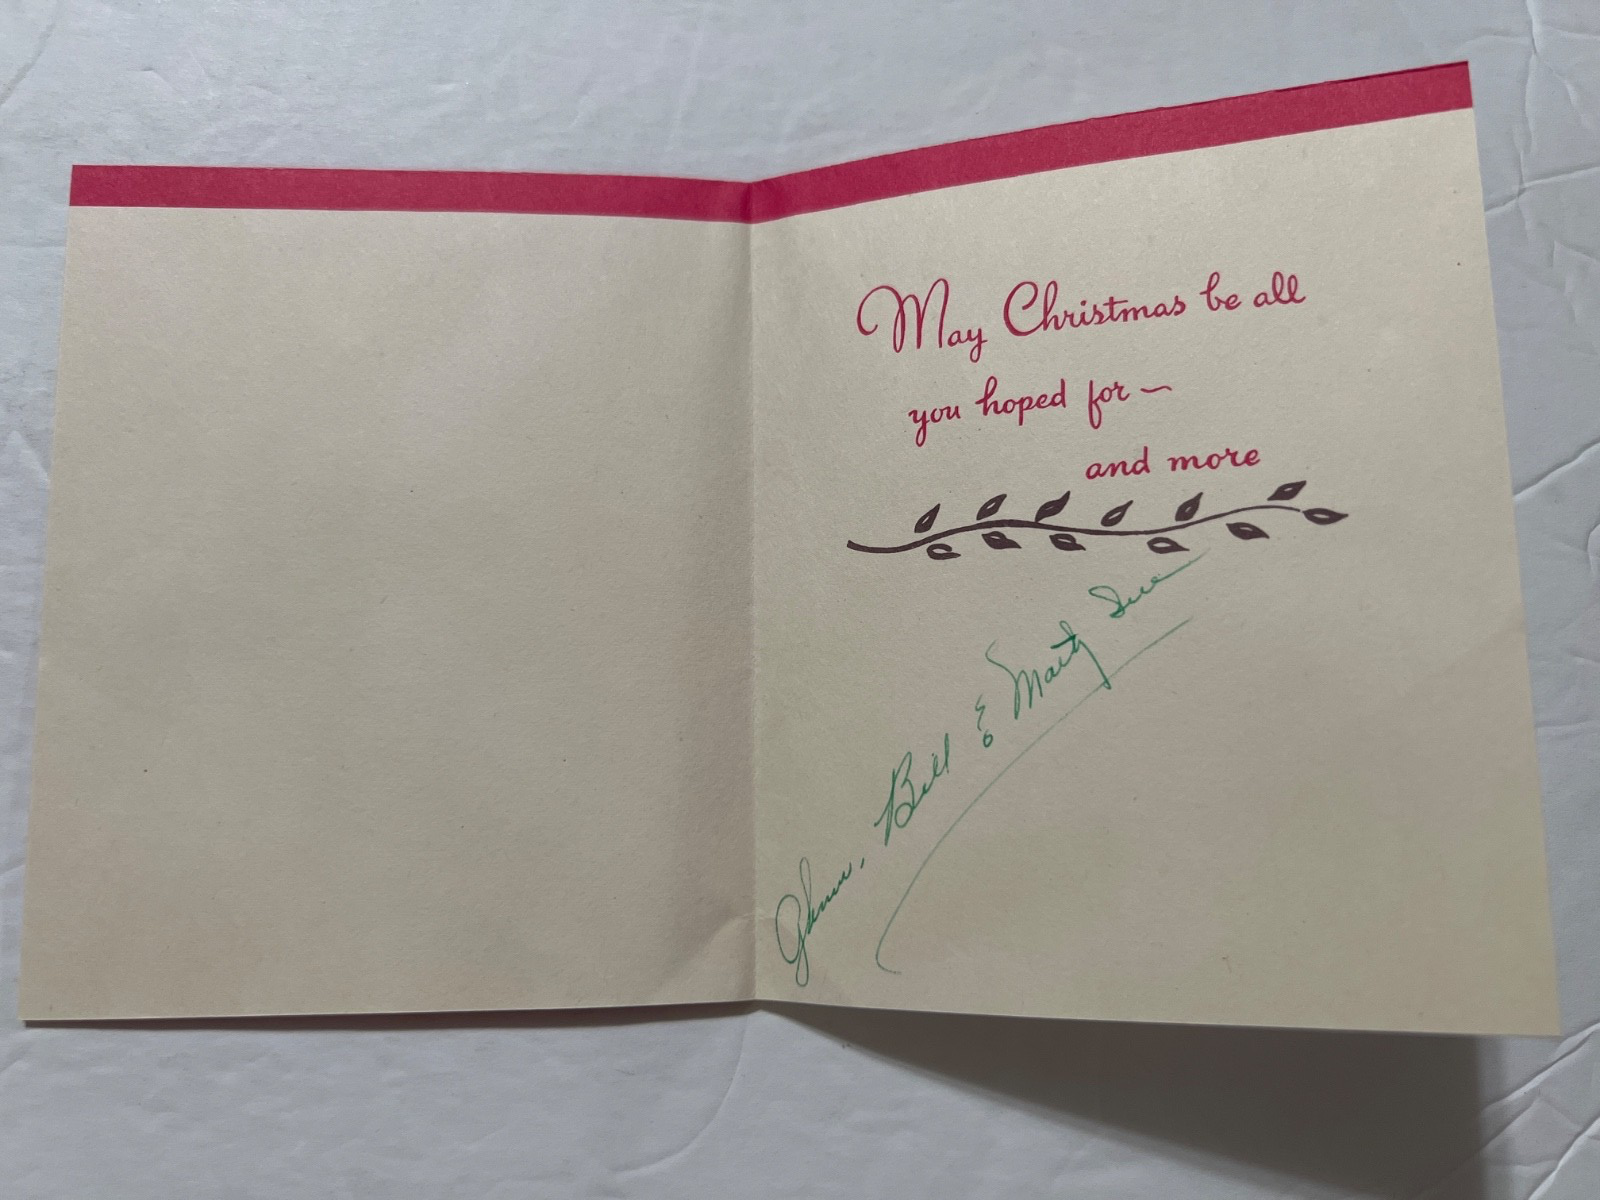 May Christmas be all
you hoped for —
and more
Bill & Marty Sue